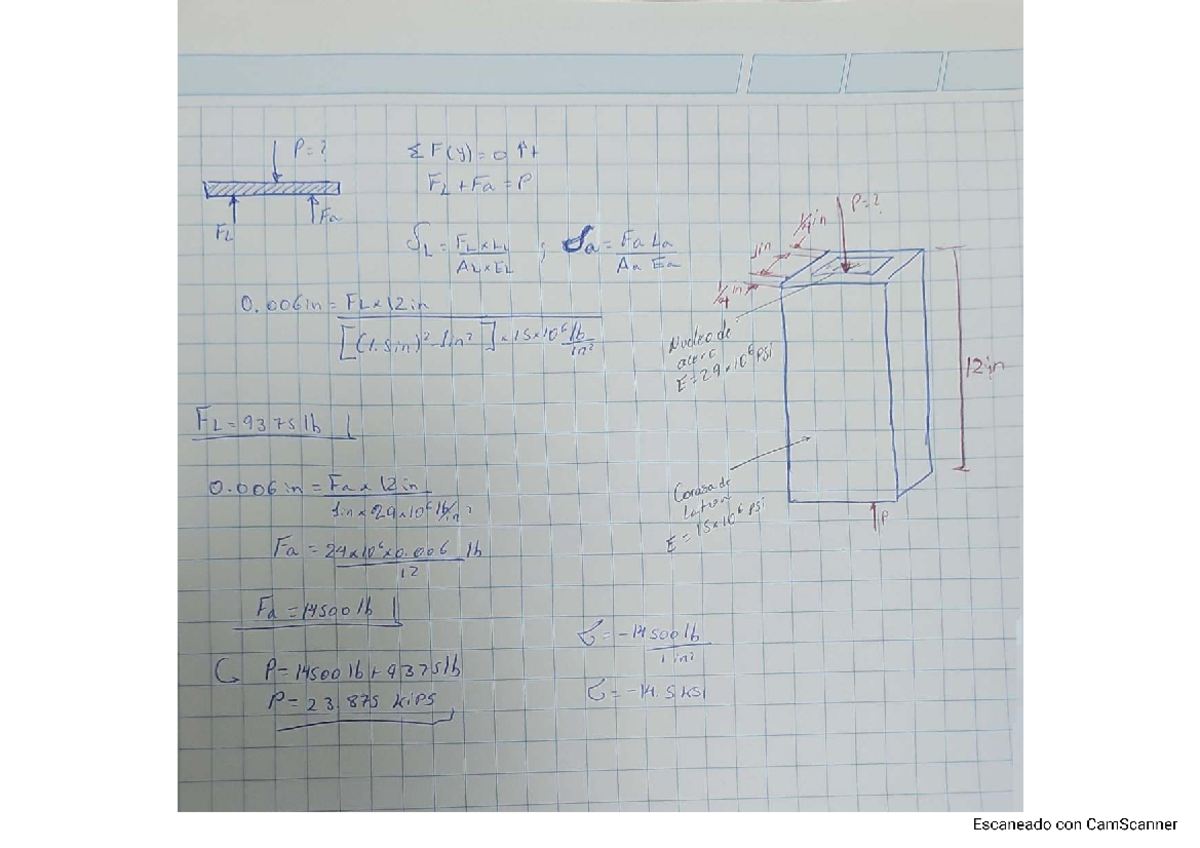 P=?
FL
Fa
Σ F(y)=0 ↑+
FL + Fa = P
δL = FL×LL / AL×EL ; δa = Fa La / Aa Ea
0.006in = FL×12in / [(1.5in)²-1in²]×15×10⁶ lb/in²
FL = 9375 lb
0.006in = Fa×12in / 1in×29×10⁶ lb/in²
Fa = 29×10⁶×0.006 lb / 12
Fa = 14500 lb
P = 14500 lb + 9375 lb
P = 23.875 kips
σ = -14500 lb / 1 in²
σ = -14.5 ksi
P=?
1/4 in
1in
1/4 in
Nucleo de
acero
E=29×10⁶ PSI
12in
Corasa de
laton
E=15×10⁶ PSI
P
Escaneado con CamScanner